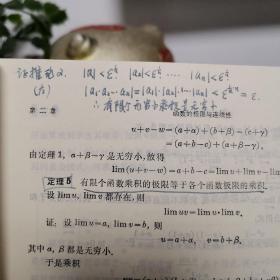 证推论2. |a₁|<ε^{1/n} |a₂|<ε^{1/n} ⋯ |aₙ|<ε^{1/n}
|a₁·a₂⋯aₙ|=|a₁|·|a₂|⋯|aₙ| < ε
∴有限个无穷小乘积是无穷小
第二章
函数的极限与连续性
u+v−w=(a+α)+(b+β)−(c+γ)
=(a+b−c)+(α+β−γ).
由定理1, α+β−γ是无穷小,故得
lim(u+v−w)=a+b−c=lim
定理5 有限个函数乘积的极限等于各个函数极限的乘积
设lim u, lim v都存在,则
lim uv=lim u·lim v.
证: 设lim u=a, lim v=b, 则
u=a+α, v=b+β,
其中α,β都是无穷小.
于是乘积